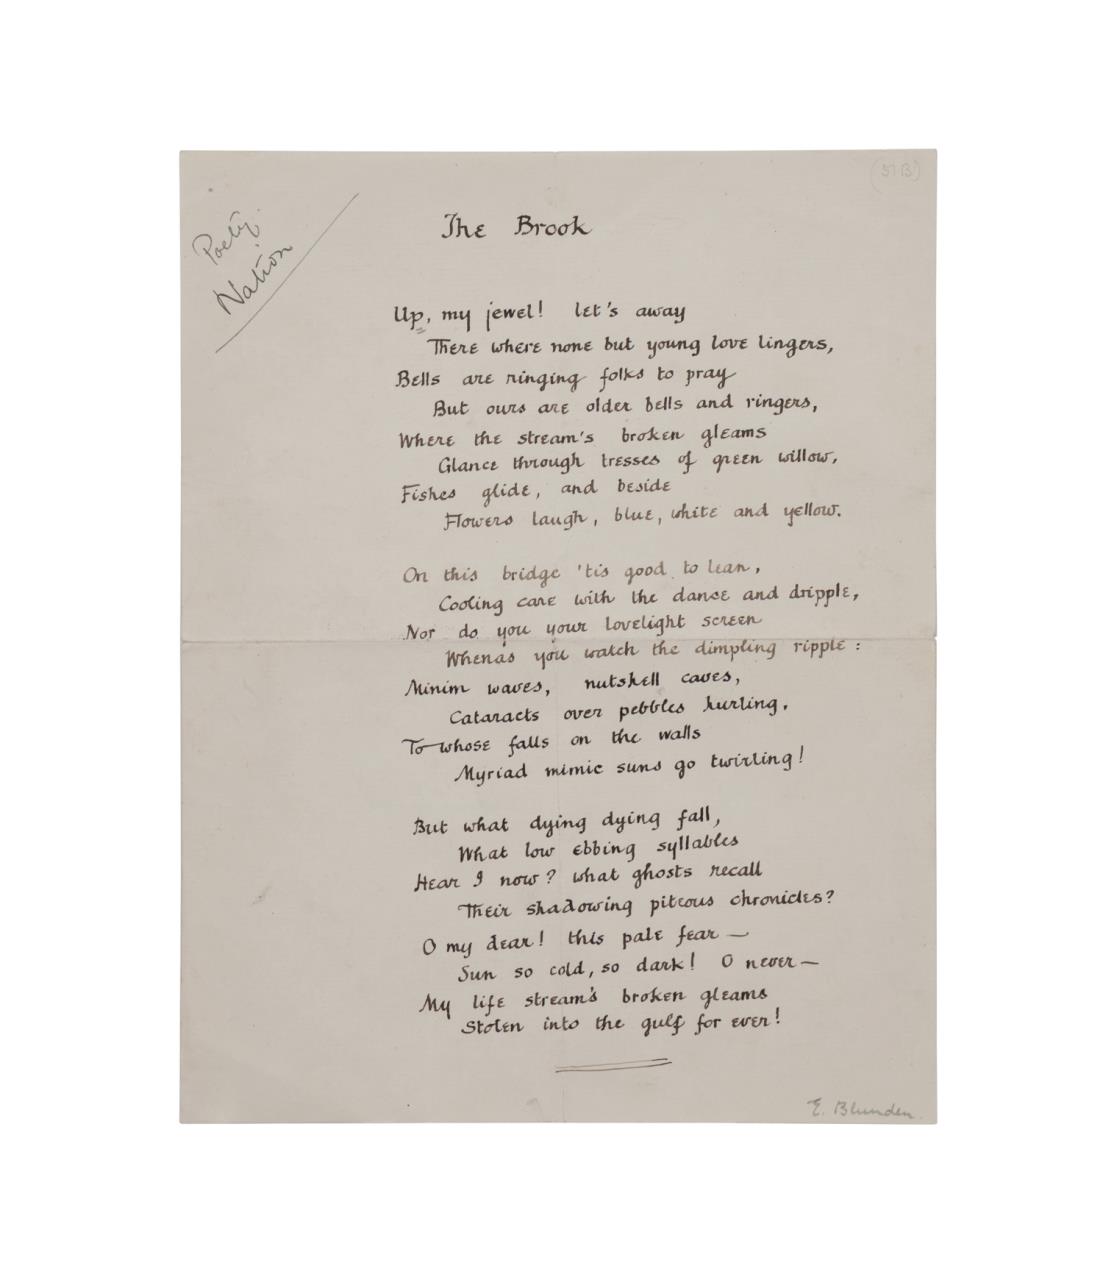 (57B)
Poetry.
Nation
The Brook
Up, my jewel! let's away
There where none but young love lingers,
Bells are ringing folks to pray
But ours are older bells and ringers,
Where the stream's broken gleams
Glance through tresses of green willow,
Fishes glide, and beside
Flowers laugh, blue, white and yellow.
On this bridge 'tis good to lean,
Cooling care with the dance and dripple,
Nor do you your lovelight screen
Whenas you watch the dimpling ripple:
Minim waves, nutshell caves,
Cataracts over pebbles hurling,
To whose falls on the walls
Myriad mimic suns go twirling!
But what dying dying fall,
What low ebbing syllables
Hear I now? what ghosts recall
Their shadowing piteous chronicles?
O my dear! this pale fear —
Sun so cold, so dark! O never —
My life stream's broken gleams
Stolen into the gulf for ever!
E. Blunden.